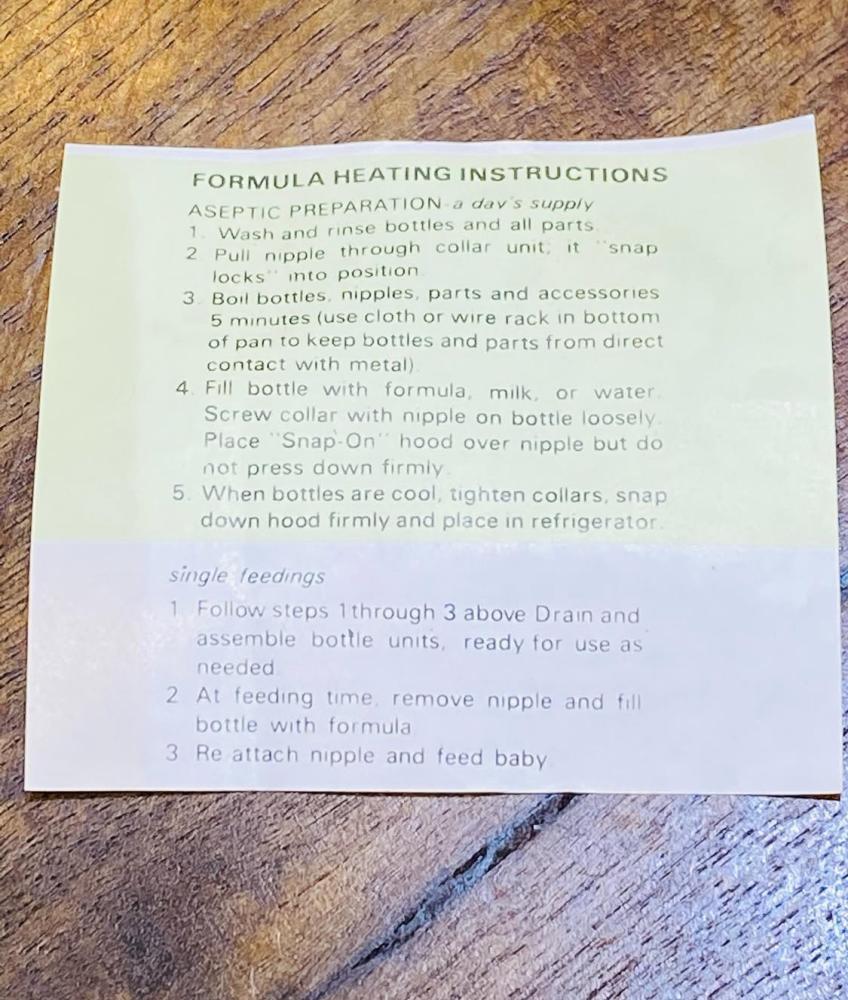 FORMULA HEATING INSTRUCTIONS
ASEPTIC PREPARATION-a day's supply
1. Wash and rinse bottles and all parts.
2. Pull nipple through collar unit; it "snap
locks" into position.
3. Boil bottles, nipples, parts and accessories
5 minutes (use cloth or wire rack in bottom
of pan to keep bottles and parts from direct
contact with metal).
4. Fill bottle with formula, milk, or water.
Screw collar with nipple on bottle loosely.
Place "Snap-On" hood over nipple but do
not press down firmly.
5. When bottles are cool, tighten collars, snap
down hood firmly and place in refrigerator.
single feedings
1 Follow steps 1 through 3 above Drain and
assemble bottle units, ready for use as
needed
2 At feeding time, remove nipple and fill
bottle with formula
3 Re attach nipple and feed baby